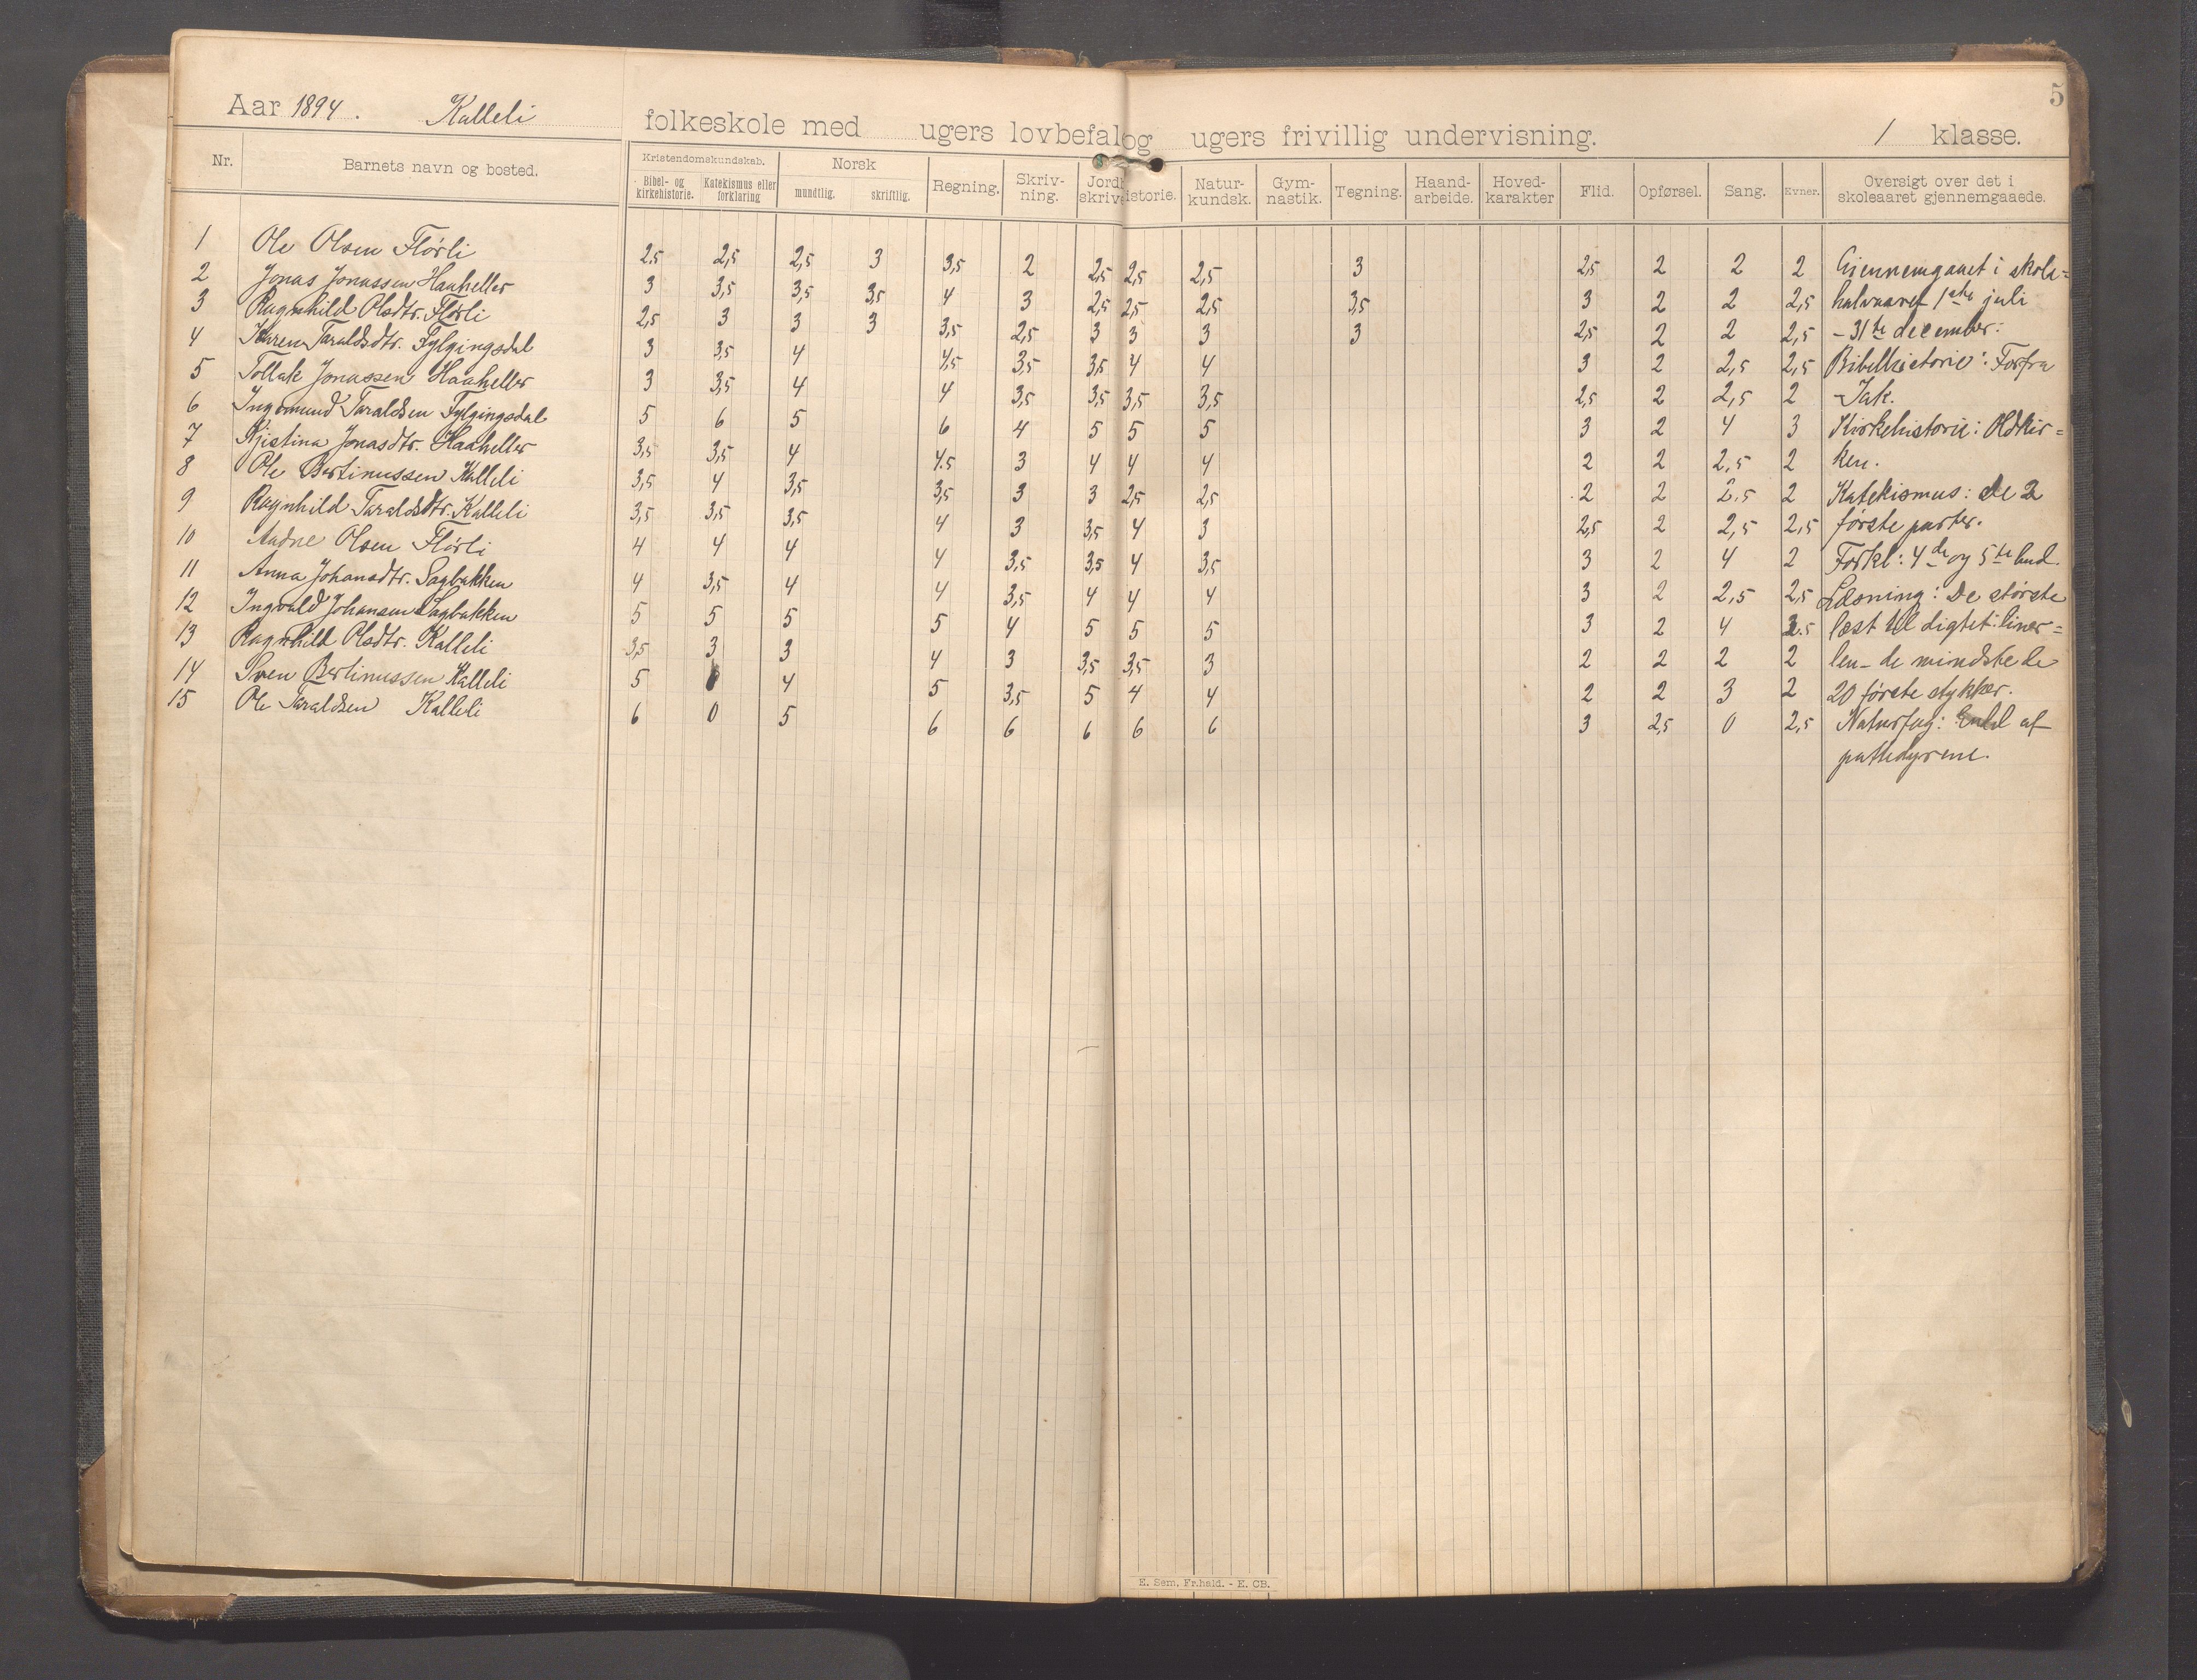 5
Aar 1894. Kalleli folkeskole med ugers lovbefal og ugers frivillig undervisning. 1 klasse.
Nr. Barnets navn og bosted. Kristendomskundskab. Norsk Regning. Skriv- Jord Natur- Gym- Tegning. Haand- Hoved- Flid. Opførsel. Sang. Evner. Oversigt over det i
Bibel- og Katekismus eller mundtlig. skriftlig. ning. skrive istorie. kundsk. nastik. arbeide. karakter skoleaaret gjennemgaaede.
kirkehistorie. forklaring
1 Ole Olsen Flørli 2.5 2,5 2,5 3 3,5 2 2,5 2,5 2,5 3 2,5 2 2 2 Gjennemgaaet i skole=
2 Jonas Jonassen Haaheller 3 3,5 3,5 3,5 4 3 2,5 2,5 2,5 3,5 3 2 2 2,5 halvaaret 1ste juli
3 Ragnhild Olsdtr. Flørli 2,5 3 3 3 3,5 2,5 3 3 3 3 2,5 2 2 2,5 – 31te december:
4 Karen Taraldsdtr. Fylgingsdal 3 3,5 4 4,5 3,5 3,5 4 4 3 2 2,5 2,5 Bibelhistorie: Forfra
5 Tollak Jonassen Haaheller 3 3,5 4 4 3,5 3,5 3,5 3,5 2,5 2 2,5 2 – Jak.
6 Ingemund Taraldsen Fylgingsdal 5 6 5 6 4 5 5 5 3 2 4 3 Kirkehistorie: Oldkir=
7 Kjistina Jonasdtr. Haaheller 3,5 3,5 4 4.5 3 4 4 4 2 2 2,5 2 ken.
8 Ole Bertinussen Kalleli 3,5 4 3,5 3,5 3 3 2,5 2,5 2 2 2.5 2 Katekismus: de 2
9 Ragnhild Taraldsdtr. Kalleli 3,5 3,5 3,5 4 3 3,5 4 3 2,5 2 2,5 2,5 første parter.
10 Andne Olsen Flørli 4 4 4 4 3,5 3,5 4 3,5 3 2 4 2 Forkl: 4de og 5te bud.
11 Anna Johansdtr. Sagbakken 4 3,5 4 4 3,5 4 4 4 3 2 2,5 2,5 Læsning: De største
12 Ingvald Johansen Sagbakken 5 5 5 5 4 5 5 5 3 2 4 3.5 læst til digtet: liner=
13 Ragnhild Olsdtr. Kalleli 3,5 3 3 4 3 3,5 3,5 3 2 2 2 2 len – de mindste de
14 Sven Bertinussen Kalleli 5 4 5 3,5 5 4 4 2 2 3 2 20 første stykker.
15 Ole Taraldsen Kalleli 6 0 5 6 6 6 6 6 3 2,5 0 2,5 Naturfag: Endel af
pattedyrene.
E. Sem, Fr.hald. - E. CB.